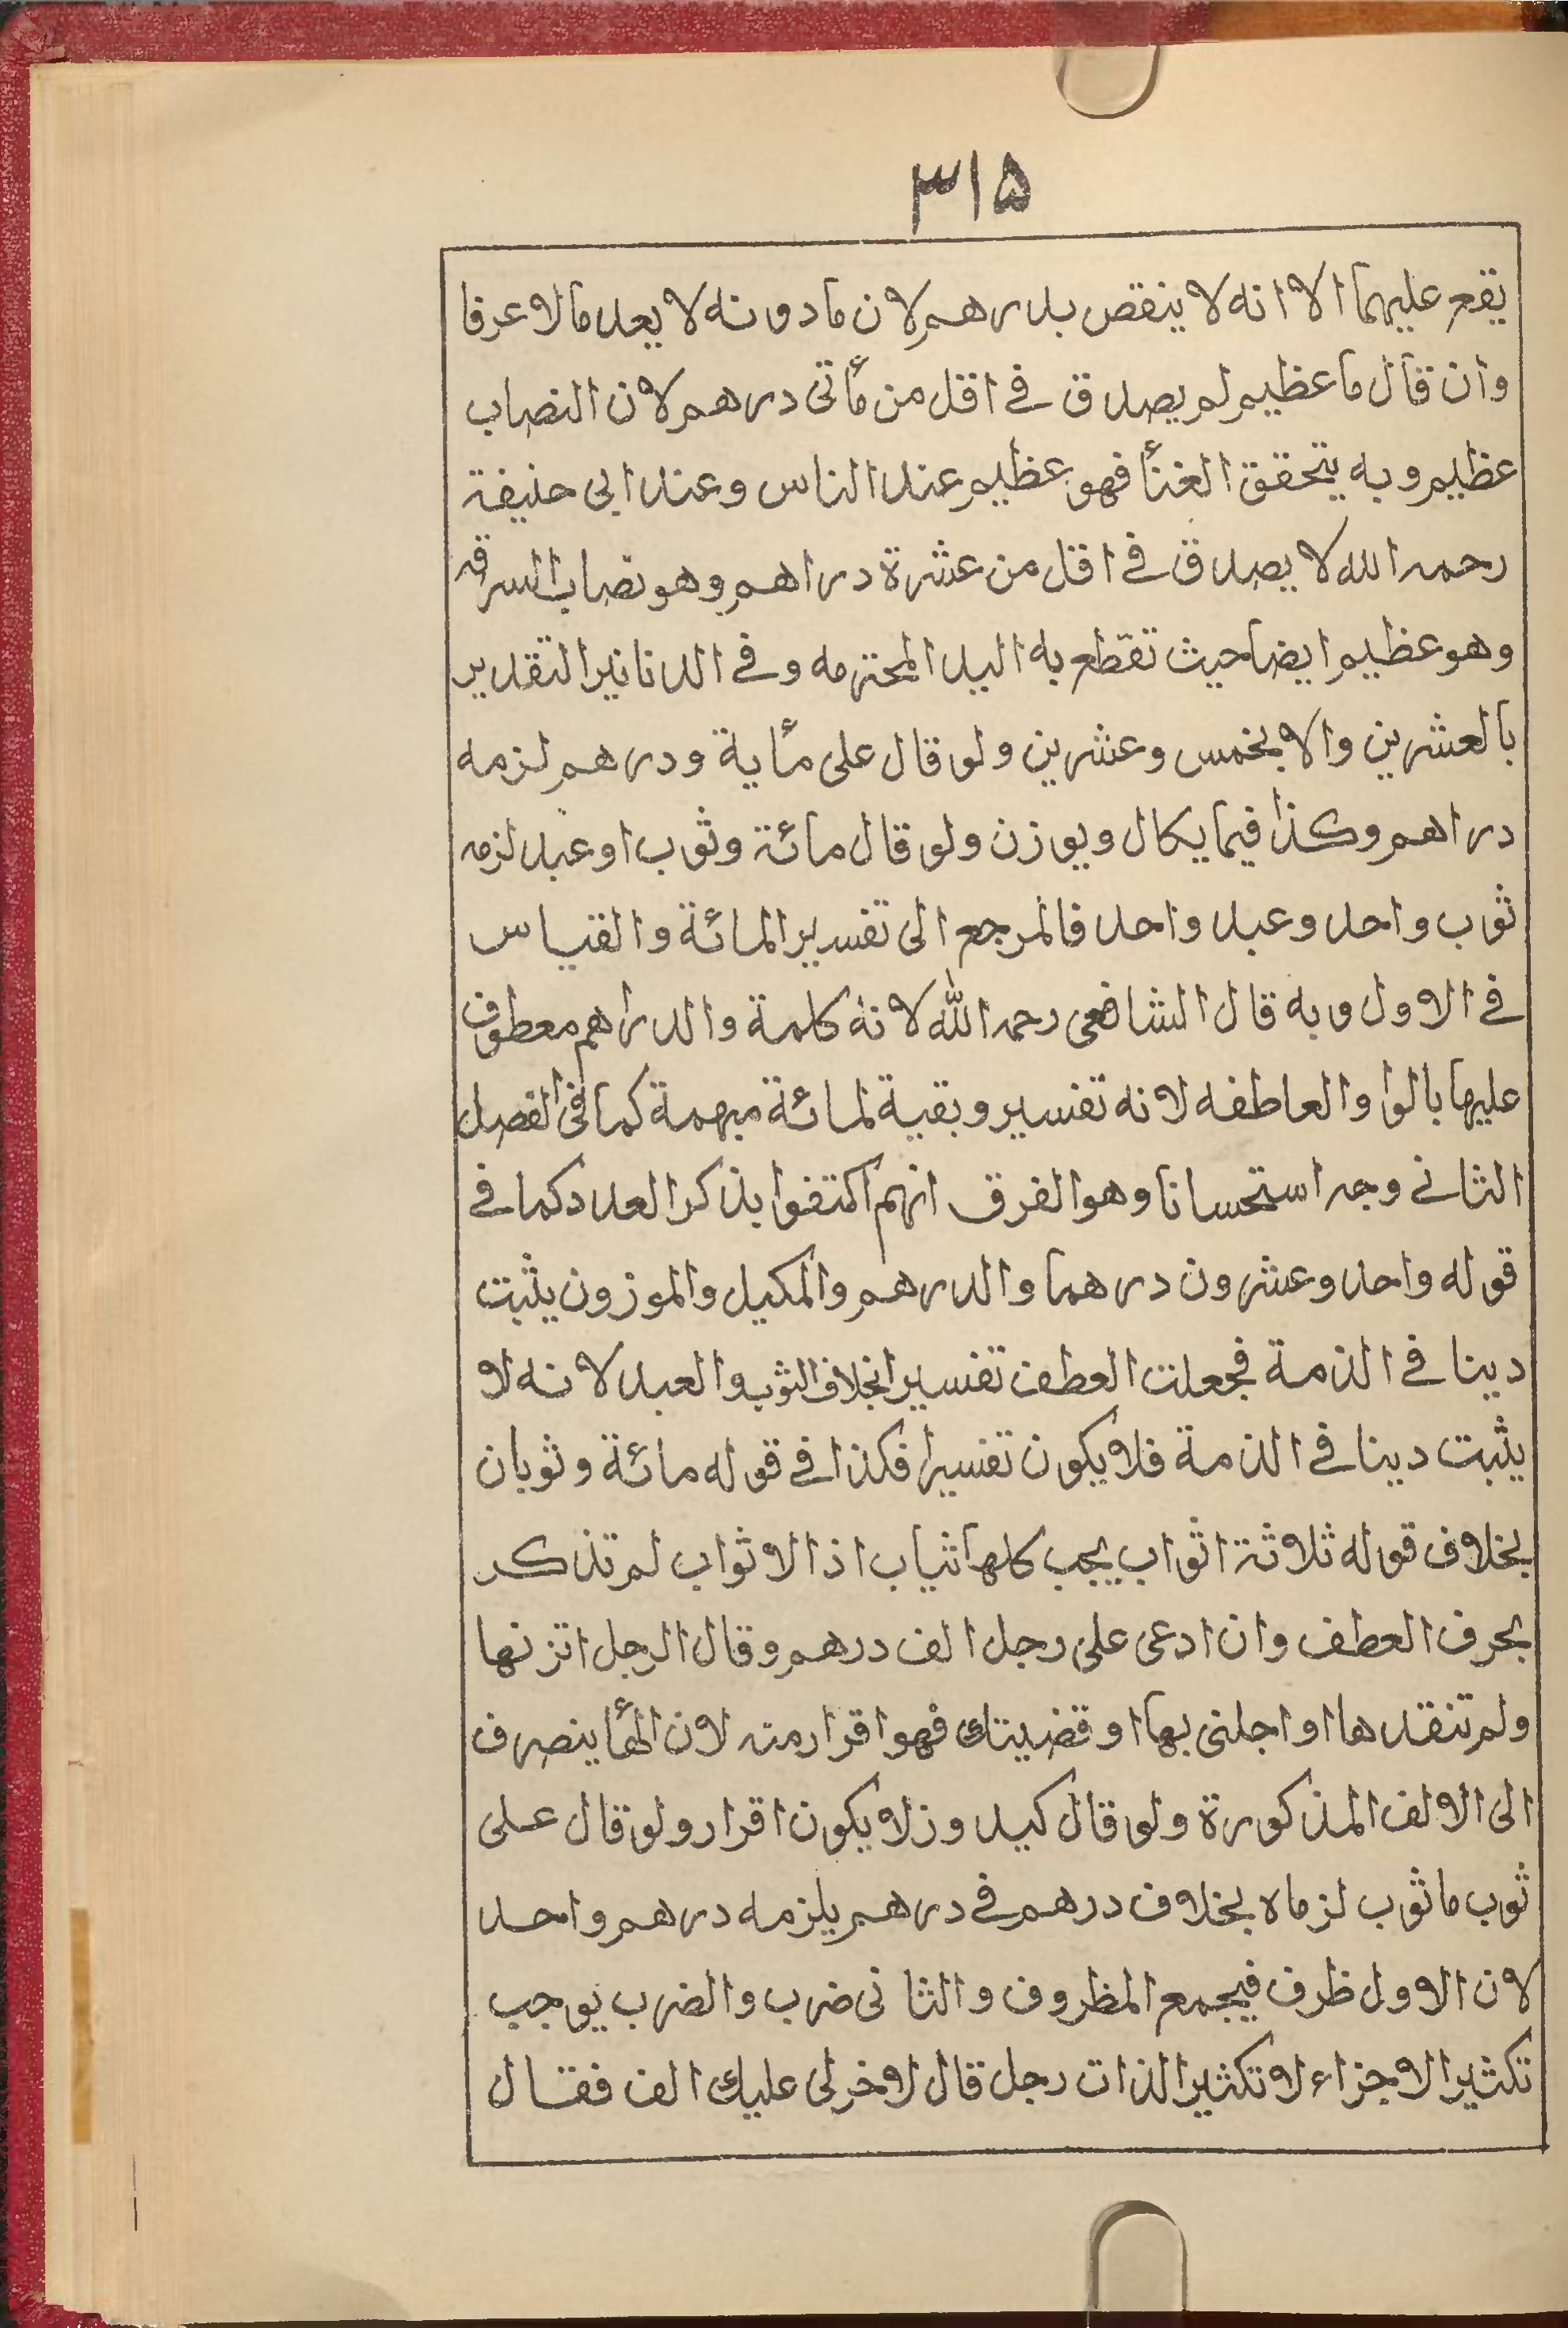 ٣١۵
يقع عليهما الا انه لا ينقص بدرهم لان مادونه لا يعد مالا عرفا
وان قال ما عظيم لم يصدق في اقل من مأتى درهم لان النصاب
عظيم وبه يتحقق الغنأ فهو عظيم عند الناس وعند ابى حنيفة
رحمه الله لا يصدق في اقل من عشرة دراهم وهو نصاب السرقه
وهو عظيم ايضا حيث تقطع به اليد المحترمه وفي الدنانير التقدير
بالعشرين والا بخمس وعشرين ولو قال على مأية ودرهم لزمه
دراهم وكذا فيما يكال ويوزن ولو قال مائة وثوب او عبد لزمه
ثوب واحد وعبد واحد فالمرجع الى تفسير المائة والقياس
في الاول وبه قال الشافعى رحمه الله لانه كلمة والدراهم معطوف
عليها بالواو العاطفه لانه تفسير وبقية لمائة مبهمة كما فى الفصل
الثاني وجه استحسانا وهو الفرق انهم اكتفوا بذكر العدد كما في
قوله واحد وعشرون درهما والدرهم والمكيل والموزون يثبت
دينا في الذمة فجعلت العطف تفسيرا بخلاف الثوب والعبد لانه لا
يثبت دينا في الذمة فلا يكون تفسيرا فكذا في قوله مائة وثوبان
بخلاف قوله ثلاثة اثواب يجب كلها ثياب اذ الاثواب لم تذكر
بحرف العطف وان ادعى على رجل الف درهم وقال الرجل اتزنها
ولم تنقدها او اجلنى بها او قضيتك فهو اقرار منه لان الهأ ينصرف
الى الالف المذكورة ولو قال كيد وزلا يكون اقرار ولو قال على
ثوب ما ثوب لزماه بخلاف درهم في درهم يلزمه درهم واحد
لان الاول ظرف فيجمع المظروف والثانى ضرب والضرب يوجب
تكثير الاجزاء لا تكثير الذات رجل قال لاخر لى عليك الف فقال